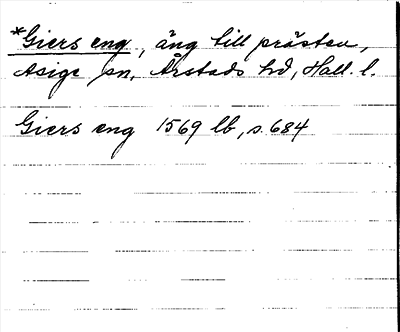 *Giers eng, äng till prästen,
Asige sn, Årstads hd, Hall. l.
Giers eng 1569 lb, s. 684